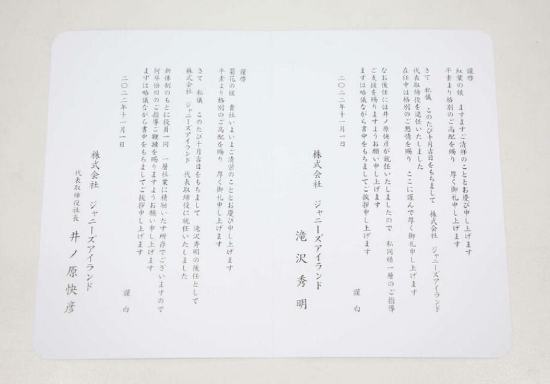 謹啓
紅葉の候　ますますご清祥のこととお慶び申し上げます
平素より格別のご高配を賜り　厚く御礼申し上げます
さて　私儀　このたび十月吉日をもちまして　株式会社　ジャニーズアイランド
代表取締役を退任いたしました
在任中は格別のご懇情を賜り　ここに謹んで厚く御礼申し上げます
なお後任には井ノ原快彦が就任いたしましたので　私同様一層のご指導
ご支援を賜りますようお願い申し上げます
まずは略儀ながら書中をもちましてご挨拶申し上げます
謹白
二〇二二年十一月一日
株式会社　ジャニーズアイランド
滝沢秀明
謹啓
菊花の候　貴社いよいよご清栄のこととお慶び申し上げます
平素より格別のご高配を賜り　厚く御礼申し上げます
さて　私儀　このたび十月吉日をもちまして　滝沢秀明の後任として
株式会社　ジャニーズアイランド　代表取締役に就任いたしました
新体制のもとに役員一同　一層社業に積励いたす所存でございますので
何卒倍旧のご指導ご鞭撻を賜りますようお願い申し上げます
まずは略儀ながら書中をもちましてご挨拶申し上げます
謹白
二〇二二年十一月一日
株式会社　ジャニーズアイランド
代表取締役社長　井ノ原快彦